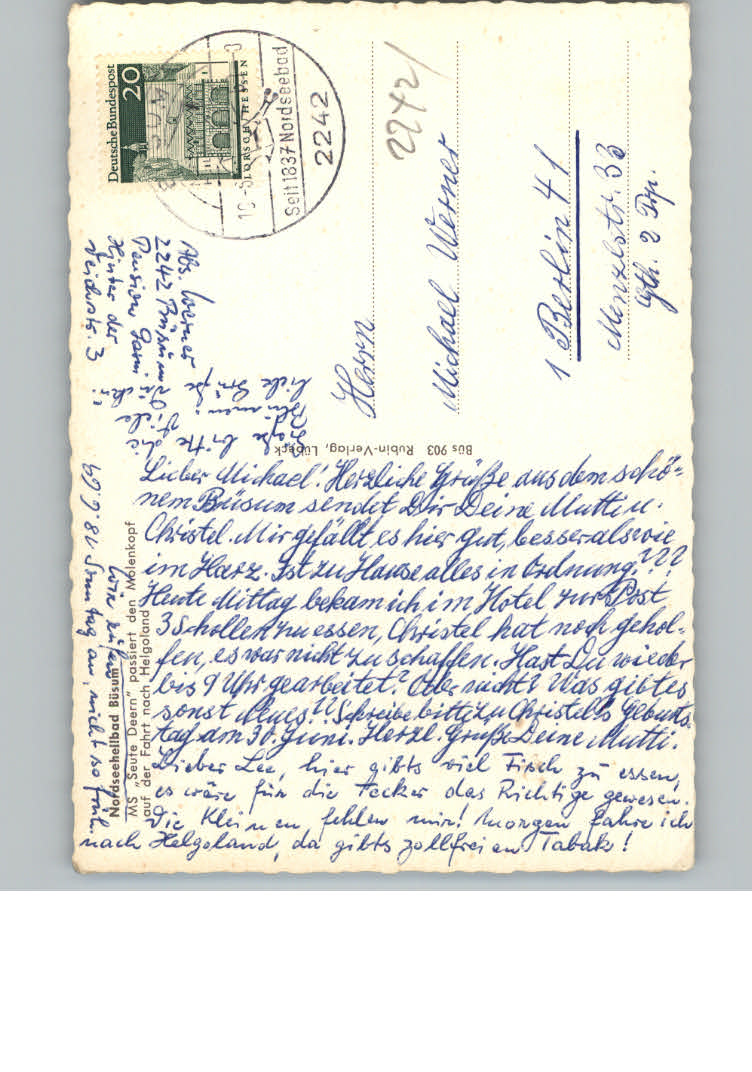 Deutsche Bundespost
20
LORSCH / HESSEN
Seit 1837 Nordseebad
2242
2242
Herrn
Michael Werner
1 Berlin 41
Menzelstr. 33
Gth. 2 Trp.
Abs. Werner
2242 Büsum
Pension
Hinter der
Deichstr. 3
bitte die
Blumen.
Viele
liebe Grüße
Büs 903 Rubin-Verlag, Lübeck
Nordseeheilbad Büsum
MS "Seute Deern" passiert den Molenkopf
auf der Fahrt nach Helgoland
18.6.69
Lieber Michael! Herzliche Grüße aus dem schö-
nem Büsum sendet Dir Deine Mutti u.
Christel. Mir gefällt es hier gut, besser als wie
im Harz. Ist zu Hause alles in Ordnung???
Heute Mittag bekam ich im Hotel zur Post
3 Schollen zu essen, Christel hat noch gehol-
fen, es war nicht zu schaffen. Hast Du wieder
bis 9 Uhr gearbeitet? Oder nicht? Was gibt es
sonst Neues?? Schreibe bitte zu Christel's Geburts-
tag am 30. Juni. Herzl. Grüße Deine Mutti.
Lieber Leo, hier gibts viel Fisch zu essen,
es wäre für die Tecker das Richtige gewesen.
Die Kleinen fehlen mir! Morgen fahre ich
nach Helgoland, da gibts zollfreien Tabak!
Wir rufen
Sonntag an, nicht so früh.